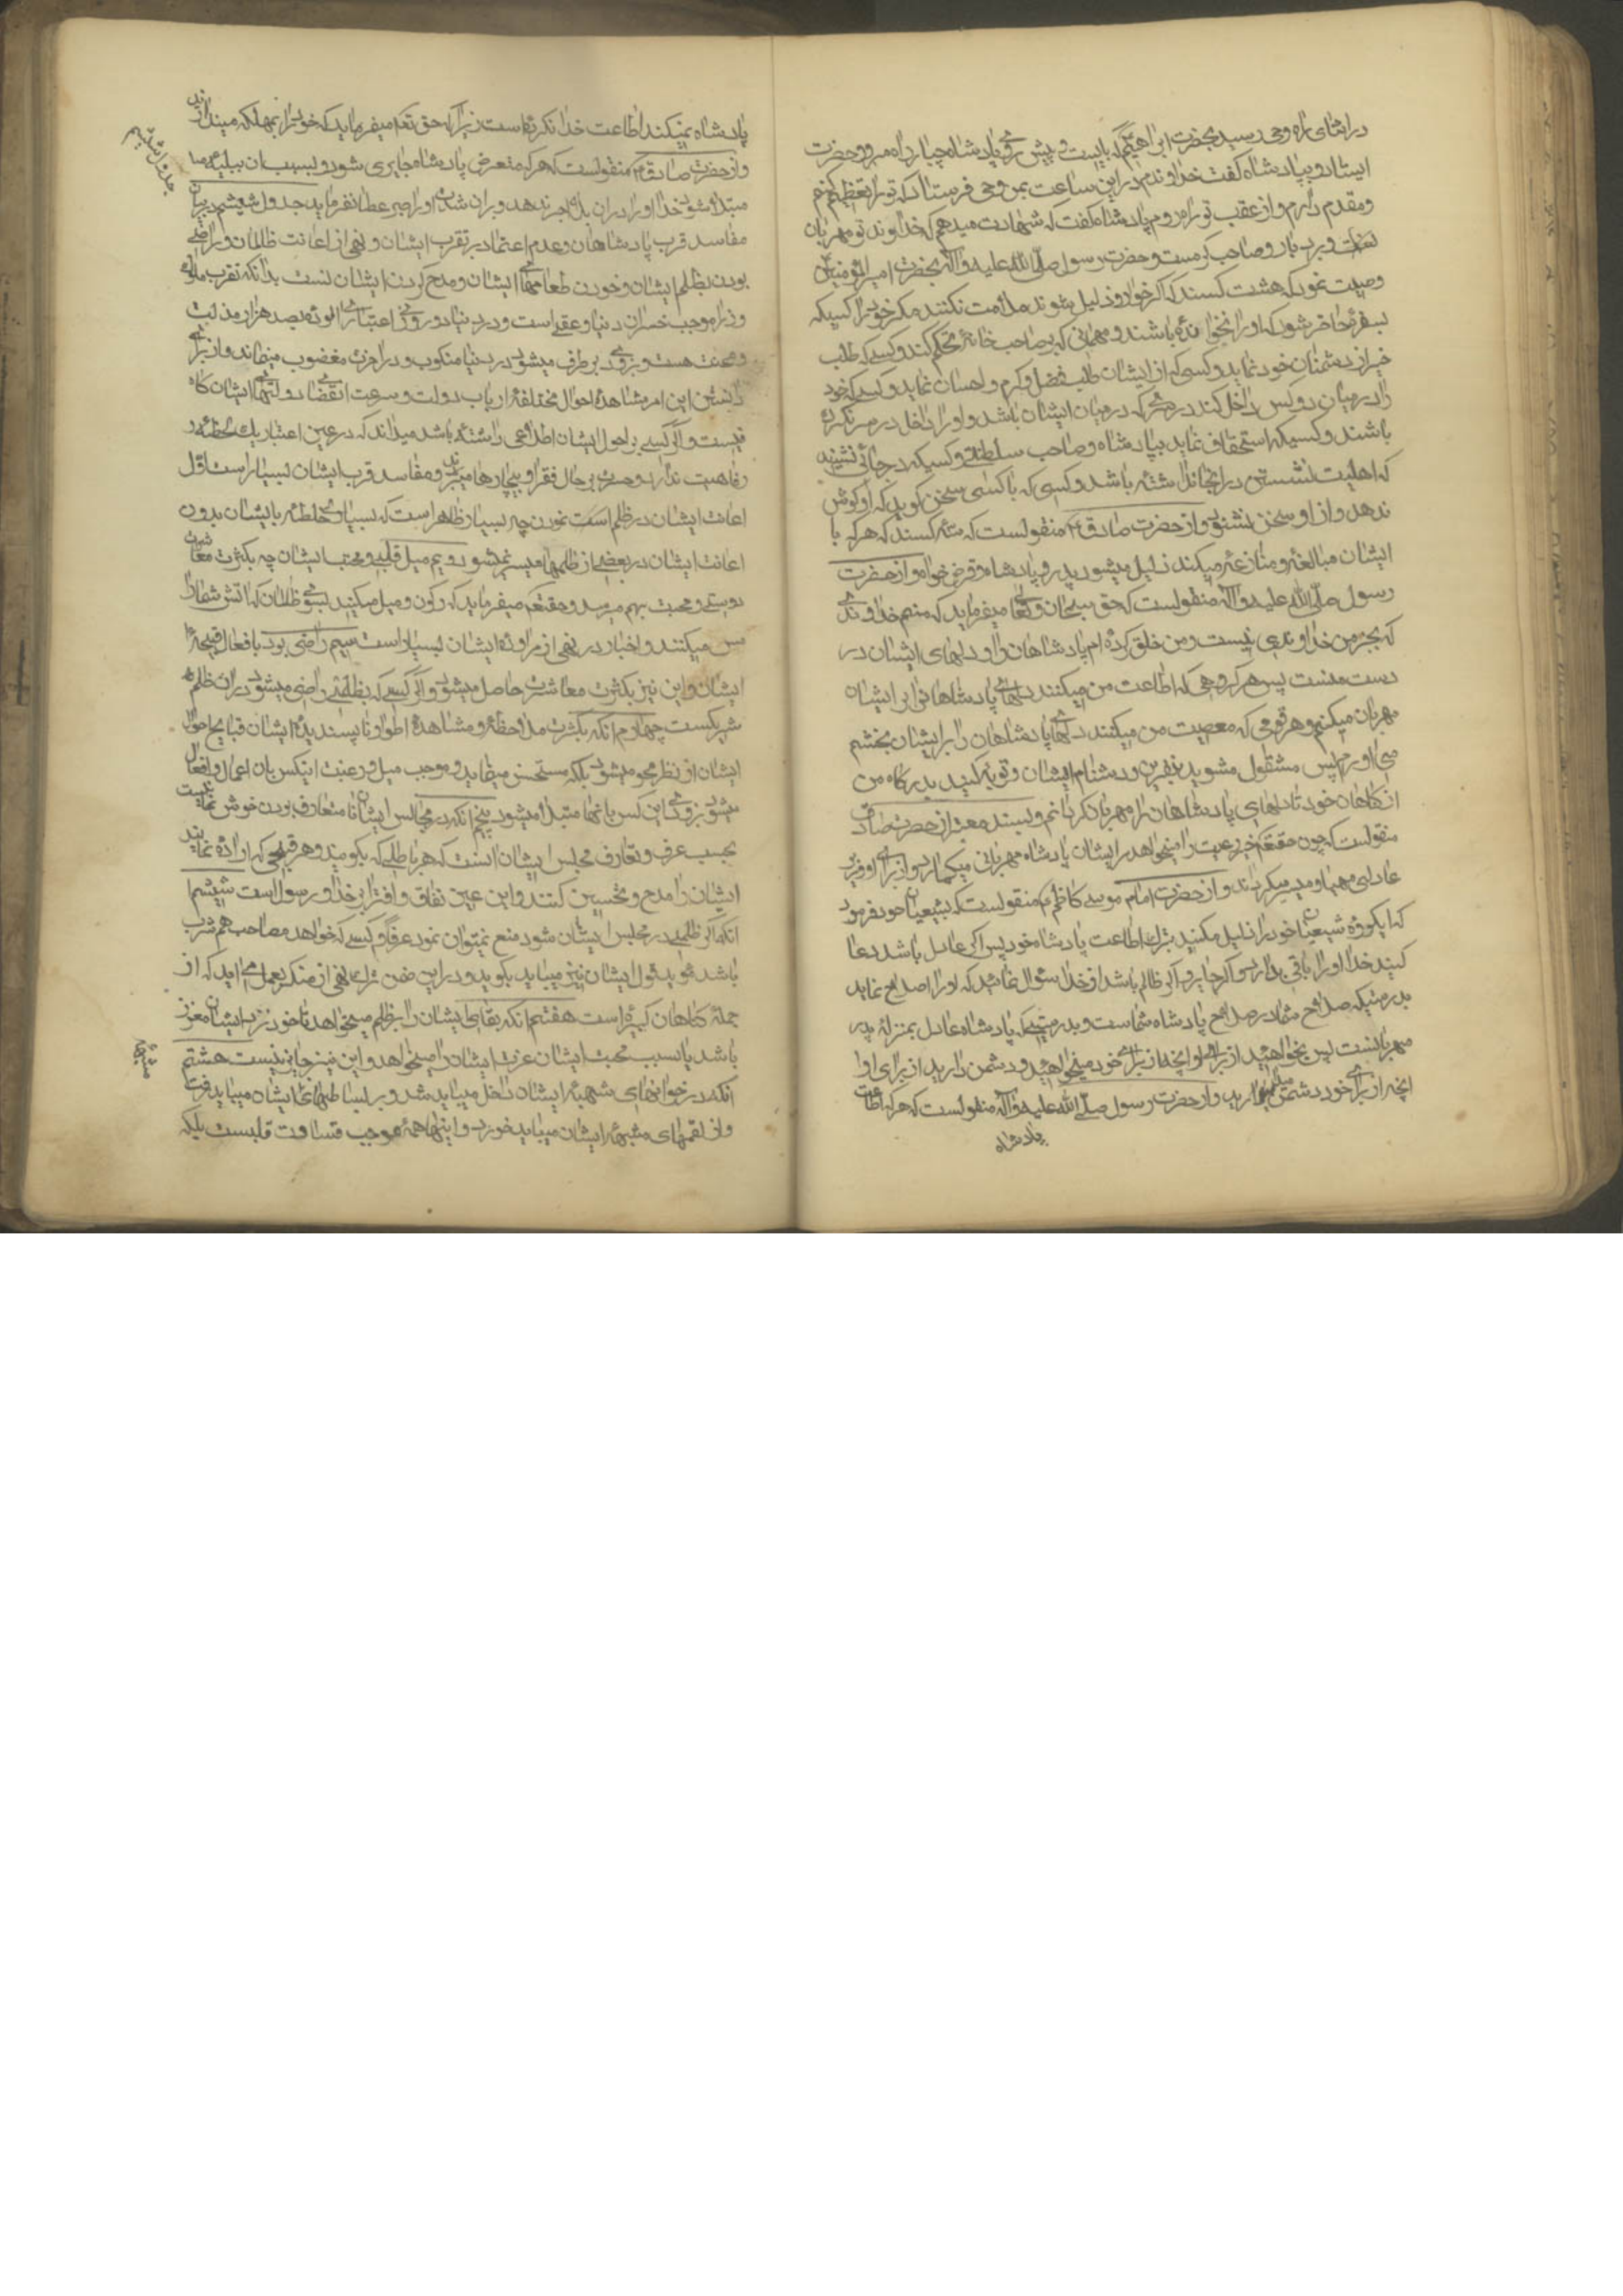 در اثنای راه وحی رسید بحضرت ابراهیم که بایست و پیش روی پادشاه جبار راه مرو و حضرت
ایستاد و بپادشاه گفت خداوندم در این ساعت بمن وحی فرستاد که تو را تعظیم کنم
و مقدم دارم و از عقب تو راه روم پادشاه گفت که شهادت میدهم که خداوند تو مهربان
و بردبار و صاحب کرمست و حضرت رسول صلّی الله علیه و آله بحضرت امیر المؤمنین
وصیت نمود که هشت کسند که اگر خوار و ذلیل شوند ملامت نکنند مکر خود را کسیکه
بسفرۀ حاضر شود که او را نخوانده باشند و مهمانی که بر صاحب خانه تحکم کند و کسی که طلب
خیر از دشمنان خود نماید و کسی که از لئیمان طلب فضل و کرم و احسان نماید و کسی که خود
را در میان دو کس داخل کند در سرّی که در میان ایشان باشد و او را داخل در سر نکرده
باشند و کسیکه استخفاف نماید بپادشاه و صاحب سلطنتی و کسیکه در جائی نشیند
که اهلیت نشستن در انجا نداشته باشد و کسی که با کسی سخن کوید که او کوش
ندهد و از او سخن نشنود و از حضرت صادق ع منقولست که سه کسند که هر که با
ایشان مبالغه و منازعه میکند ذلیل میشود پدر و پادشاه و قرض خواه و از حضرت
رسول صلّی الله علیه و آله منقولست که حق سبحانه و تعالی میفرماید که منم خداوندی
که بجز من خداوندی نیست و من خلق کرده ام پادشاهان را و دلهای ایشان در
دست منست پس هر کروهی که اطاعت من میکنند دلهای پادشاهان را بر ایشان
مهربان میکنم و هر قومی که معصیت من میکنند دلهای پادشاهان را بر ایشان بخشم
می اورم پس مشغول مشوید بنفرین و دشنام ایشان و توبه کنید بدرکاه من
از کناهان خود تا دلهای پادشاهان را مهربان کردانم و بسند معتبر از حضرت صادق
منقولست که چون حقتعالی خیر رعیت را میخواهد بر ایشان پادشاه مهربانی میکمارد و از برای او وزیر
عادلی مهیا و میسر میکرداند و از حضرت امام موسی کاظم ع منقولست که بشیعیان خود فرمود
که ایکروه شیعیان خود را ذلیل مکنید بترک اطاعت پادشاه خود پس اکر عادل باشد دعا
کنید خدا او را باقی بدارد و اکر جایر و اکر ظالم باشد از خدا سؤال نمائید که او را اصلاح نماید
بدرستیکه صلاح شما در صلاح پادشاه شماست و بدرستیکه پادشاه عادل بمنزلۀ پدر
مهربانست پس بخواهید از برای او انچه از برای خود میخواهید و دشمن دارید از برای او
انچه از برای خود دشمن میدارید و از حضرت رسول صلّی الله علیه و آله منقولست که هر که اطاعت
پادشاه
پادشاه نمیکند اطاعت خدا نکرده است زیرا که حق تعالی میفرماید که خود را بمهلکه میندازید
و از حضرت صادق ع منقولست که هر که متعرض پادشاه جایری شود و بسبب ان ببلیه
مبتلا شود خدا او را در ان بلا اجر ندهد و بر ان شدت او را صبر عطا نفرماید جدول ششم در بیان
مفاسد قرب پادشاهان و عدم اعتماد بر تقرب ایشان و نهی از اعانت ظالمان و راضی
بودن بظلم ایشان و خوردن طعامهای ایشان و مدح کردن ایشان است بدانکه تقرب ملوک
جدول ششم
و موجب خسران دنیا و عقبی است و در دنیا دو روزی اعتباری الوده بصد هزار مذلت
و محنت هست و بزودی بر طرف میشود در دنیا منکوب و در اخرت مغضوب میماند و از برای
دانستن این امر مشاهدۀ احوال مختلفۀ ارباب دولت و سرعت انقضاء دولتهای ایشان کافی
نیست و اگر کسی بر احوال ایشان اطلاعی داشته باشد میداند که در عین اعتبار یک لحظه
رفاهیت ندارند و حسرت بر حال فقرا و بیچارها میبرند و مفاسد قرب ایشان بسیار است اول
اعانت ایشان در ظلم است نمودن چه بسیار ظاهر است که بسیاری خلطه با ایشان بدون
اعانت ایشان در بعضی از ظلمها میسر نمیشود دویم میل قلبی و محبت ایشان چه بکثرت معاشرت
دوستی و محبت بهم میرسد و حقتعالی میفرماید که رکون و میل مکنید بسوی ظالمان که اتش شما را
مس میکند و اخبار در نهی از مراودۀ ایشان بسیار است سیم راضی بود بافعال قبیحۀ
ایشان و این نیز بکثرت معاشرت حاصل میشود و اگر کسی که بظلمی راضی میشود در ان ظلم
شریکست چهارم انکه بکثرت ملاحظه و مشاهدۀ اطوار ناپسندیدۀ ایشان قبایح احوال
ایشان از نظر محو میشود بلکه مستحسن مینماید و موجب میل و رغبت اینکس بان اعمال و افعال
میشود بزودی این کس بانها مبتلا میشود پنجم انکه در مجالس ایشان تا متعارف بودن خوش نمائیست
بحسب عرف و تعارف مجلس ایشان انست که هر باطلی که بکویند و هر قبیحی که اراده نمایند
ایشان را مدح و تحسین کنند و این عین نفاق و افترا بر خدا و رسول است ششم
انکه اکر ظلمی در مجلس ایشان شود منع نمیتوان نمود عرفا و کسی که خواهد مصاحب هم شرب
باشد مؤید قول ایشان نیز میباید بکوید و در این ضمن ترک نهی از منکر بعمل می اید که از
جملۀ کناهان کبیره است هفتم انکه بقای ایشان را بر ظلم میخواهد تا خود نزد ایشان معزز
باشد یا بسبب محبت ایشان عزت ایشان را میخواهد و این نیز جایز نیست هشتم
انکه در خوانهای شبهۀ ایشان داخل میباید شد و بر بساطهای ایشان میباید رفت
و از لقمهای مشبهۀ ایشان میباید خورد و اینها همه موجب قساوت قلبست بلکه